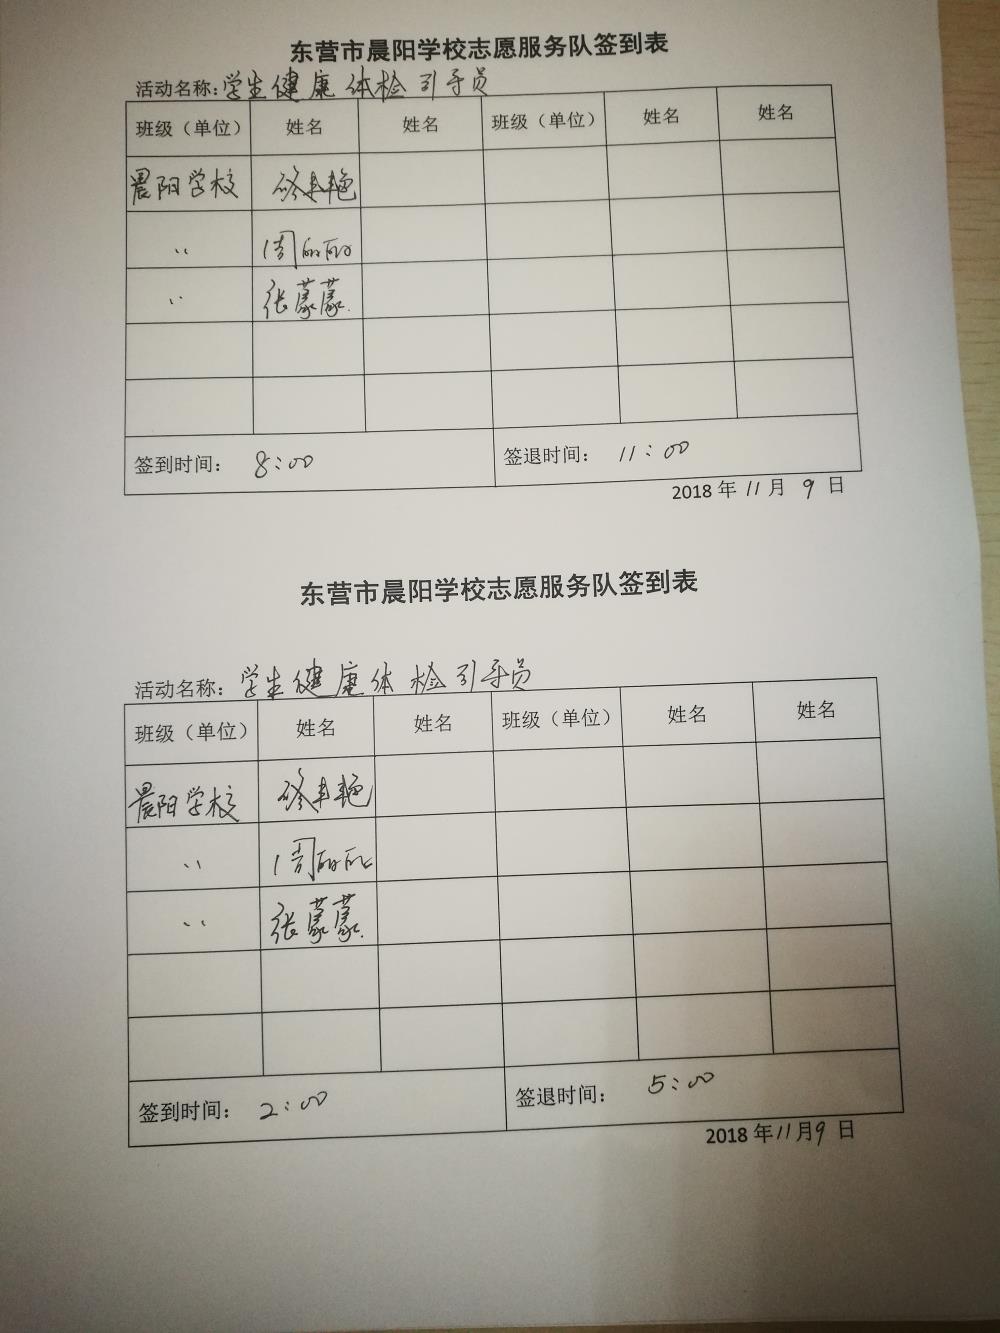 东营市晨阳学校志愿服务队签到表
活动名称：学生健康体检引导员
班级（单位） 姓名 姓名 班级（单位） 姓名 姓名
晨阳学校
〃 周丽丽
〃 张蒙蒙
签到时间： 8:00 签退时间： 11:00
2018 年 11 月 9 日
东营市晨阳学校志愿服务队签到表
活动名称：学生健康体检引导员
班级（单位） 姓名 姓名 班级（单位） 姓名 姓名
晨阳学校
〃 周丽丽
〃 张蒙蒙
签到时间： 2:00 签退时间： 5:00
2018 年 11 月 9 日